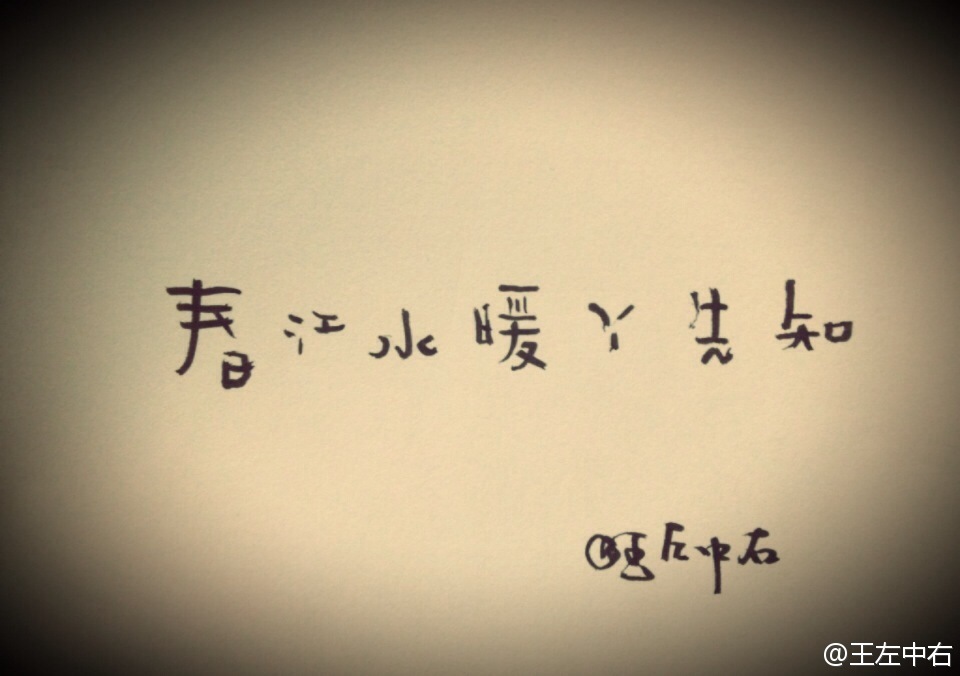 春江水暖丫先知
@王左中右
@王左中右